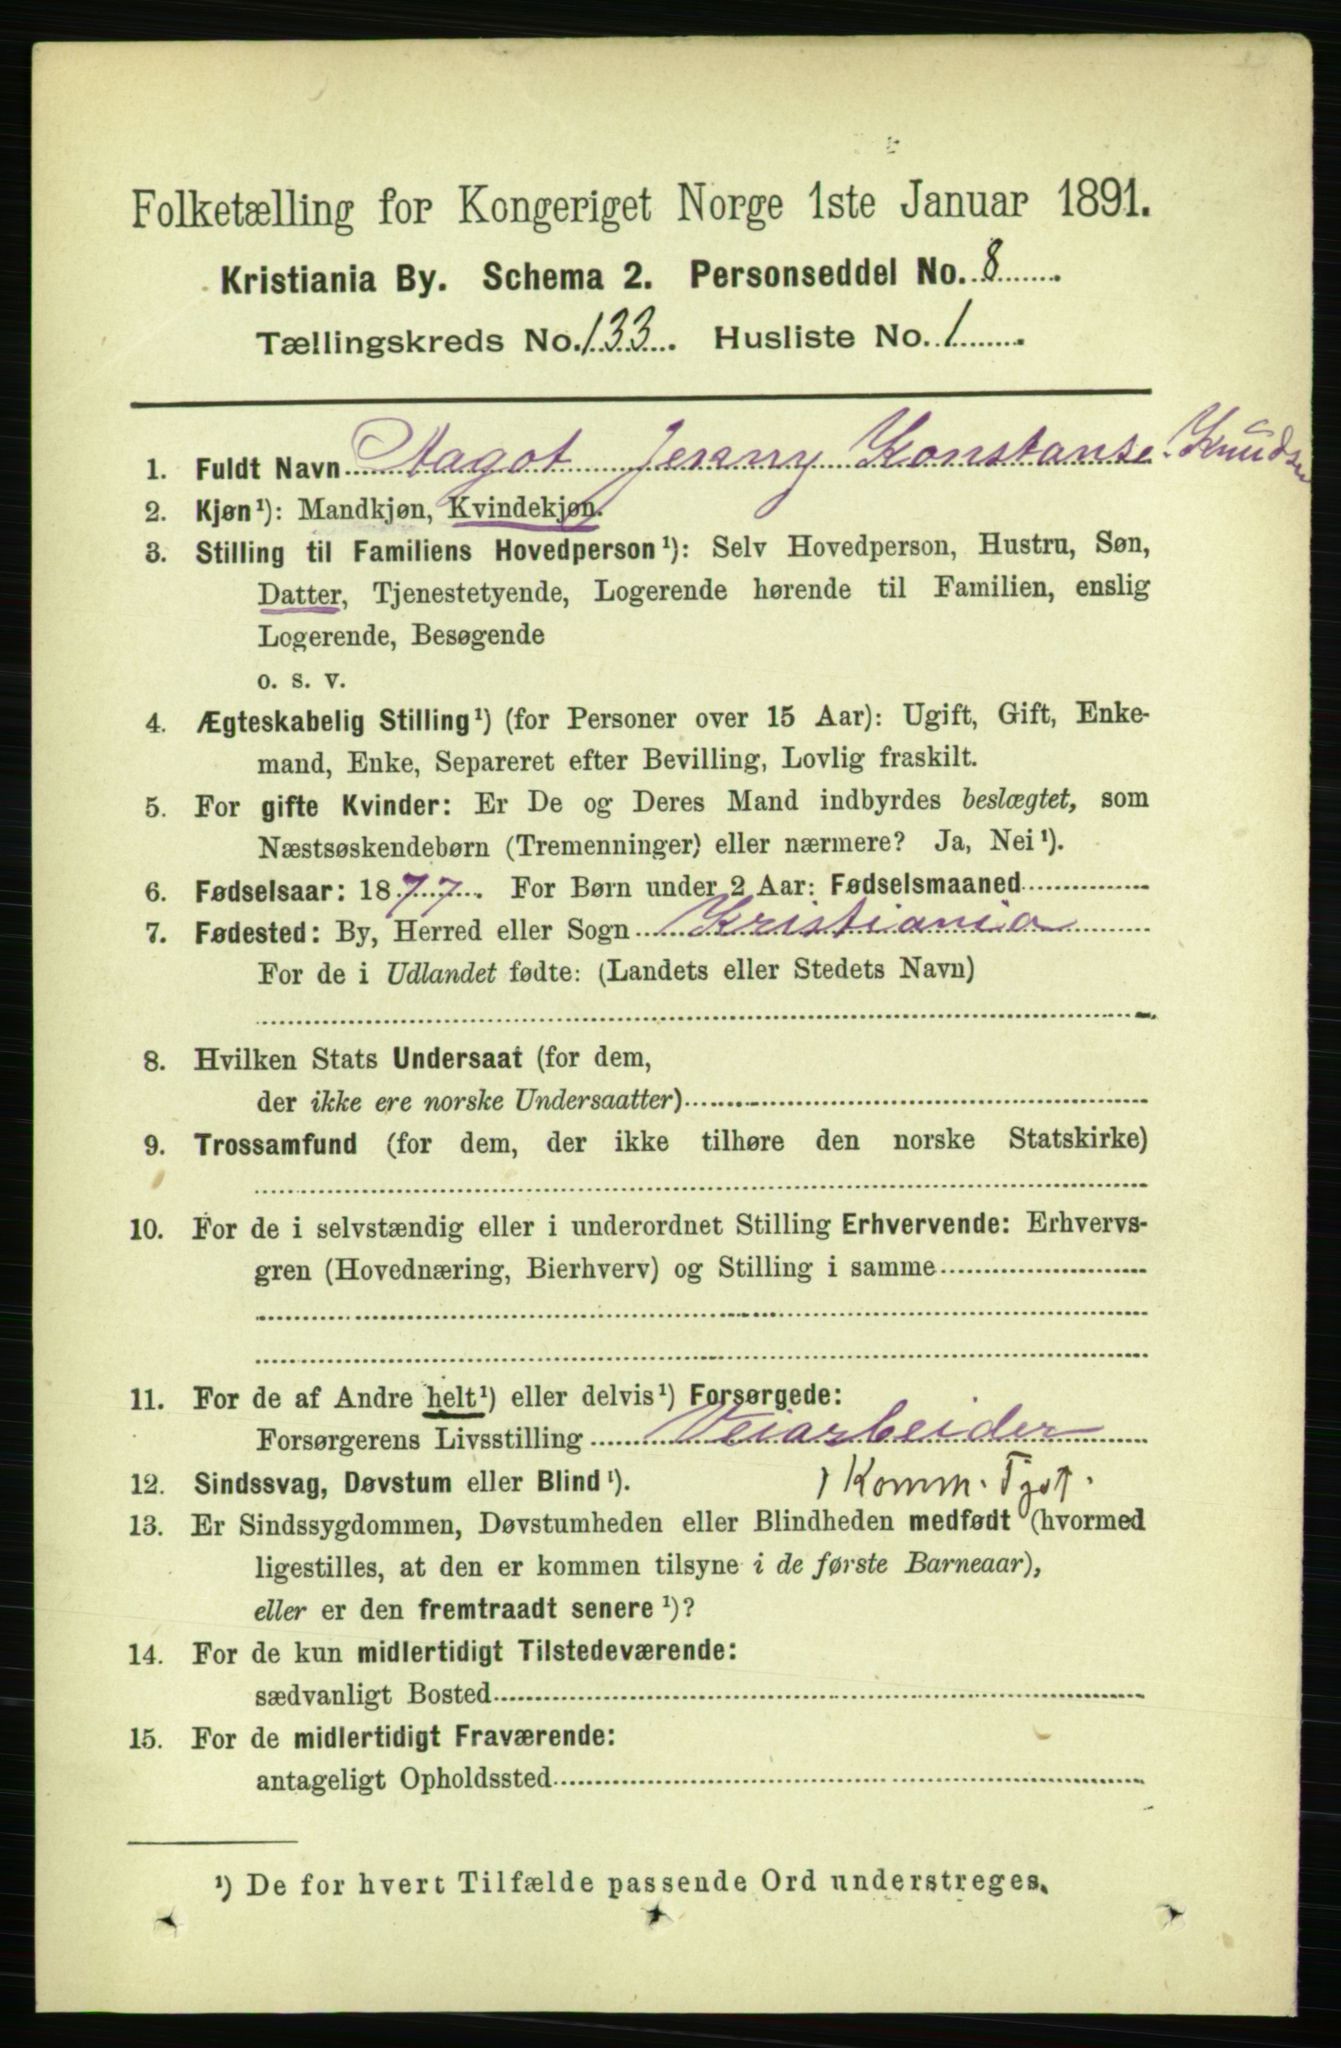 Folketælling for Kongeriget Norge 1ste Januar 1891.
Kristiania By. Schema 2. Personseddel No. 8
Tællingskreds No. 133. Husliste No. 1
1. Fuldt Navn Aagot Jenny Konstanse Knudsen
2. Kjøn¹): Mandkjøn, Kvindekjøn.
3. Stilling til Familiens Hovedperson¹): Selv Hovedperson, Hustru, Søn,
Datter, Tjenestetyende, Logerende hørende til Familien, enslig
Logerende, Besøgende
o. s. v.
4. Ægteskabelig Stilling¹) (for Personer over 15 Aar): Ugift, Gift, Enke-
mand, Enke, Separeret efter Bevilling, Lovlig fraskilt.
5. For gifte Kvinder: Er De og Deres Mand indbyrdes beslægtet, som
Næstsøskendebørn (Tremenninger) eller nærmere? Ja, Nei¹).
6. Fødselsaar: 1877. For Børn under 2 Aar: Fødselsmaaned
7. Fødested: By, Herred eller Sogn Kristiania
For de i Udlandet fødte: (Landets eller Stedets Navn)
8. Hvilken Stats Undersaat (for dem,
der ikke ere norske Undersaatter)
9. Trossamfund (for dem, der ikke tilhøre den norske Statskirke)
10. For de i selvstændig eller i underordnet Stilling Erhvervende: Erhvervs-
gren (Hovednæring, Bierhverv) og Stilling i samme
11. For de af Andre helt¹) eller delvis¹) Forsørgede:
Forsørgerens Livsstilling Veiarbeider
12. Sindssvag, Døvstum eller Blind¹). Komm.
13. Er Sindssygdommen, Døvstumheden eller Blindheden medfødt (hvormed
ligestilles, at den er kommen tilsyne i de første Barneaar),
eller er den fremtraadt senere¹)?
14. For de kun midlertidigt Tilstedeværende:
sædvanligt Bosted
15. For de midlertidigt Fraværende:
antageligt Opholdssted
¹) De for hvert Tilfælde passende Ord understreges.